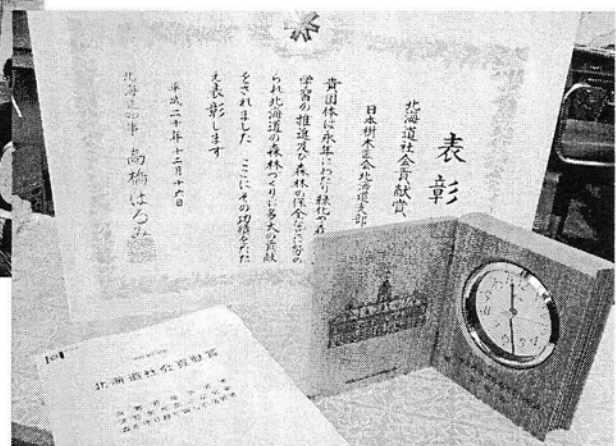 表彰
北海道社会貢献賞
日本樹木医会北海道支部
貴団体は永年にわたり緑化や森
学習の推進及び森林の保全などに努め
られ北海道の森林づくりに多大の貢献
をされました ここにその功績をたた
え表彰します
平成二十年十二月十六日
北海道知事 高橋はるみ
北海道社会貢献賞